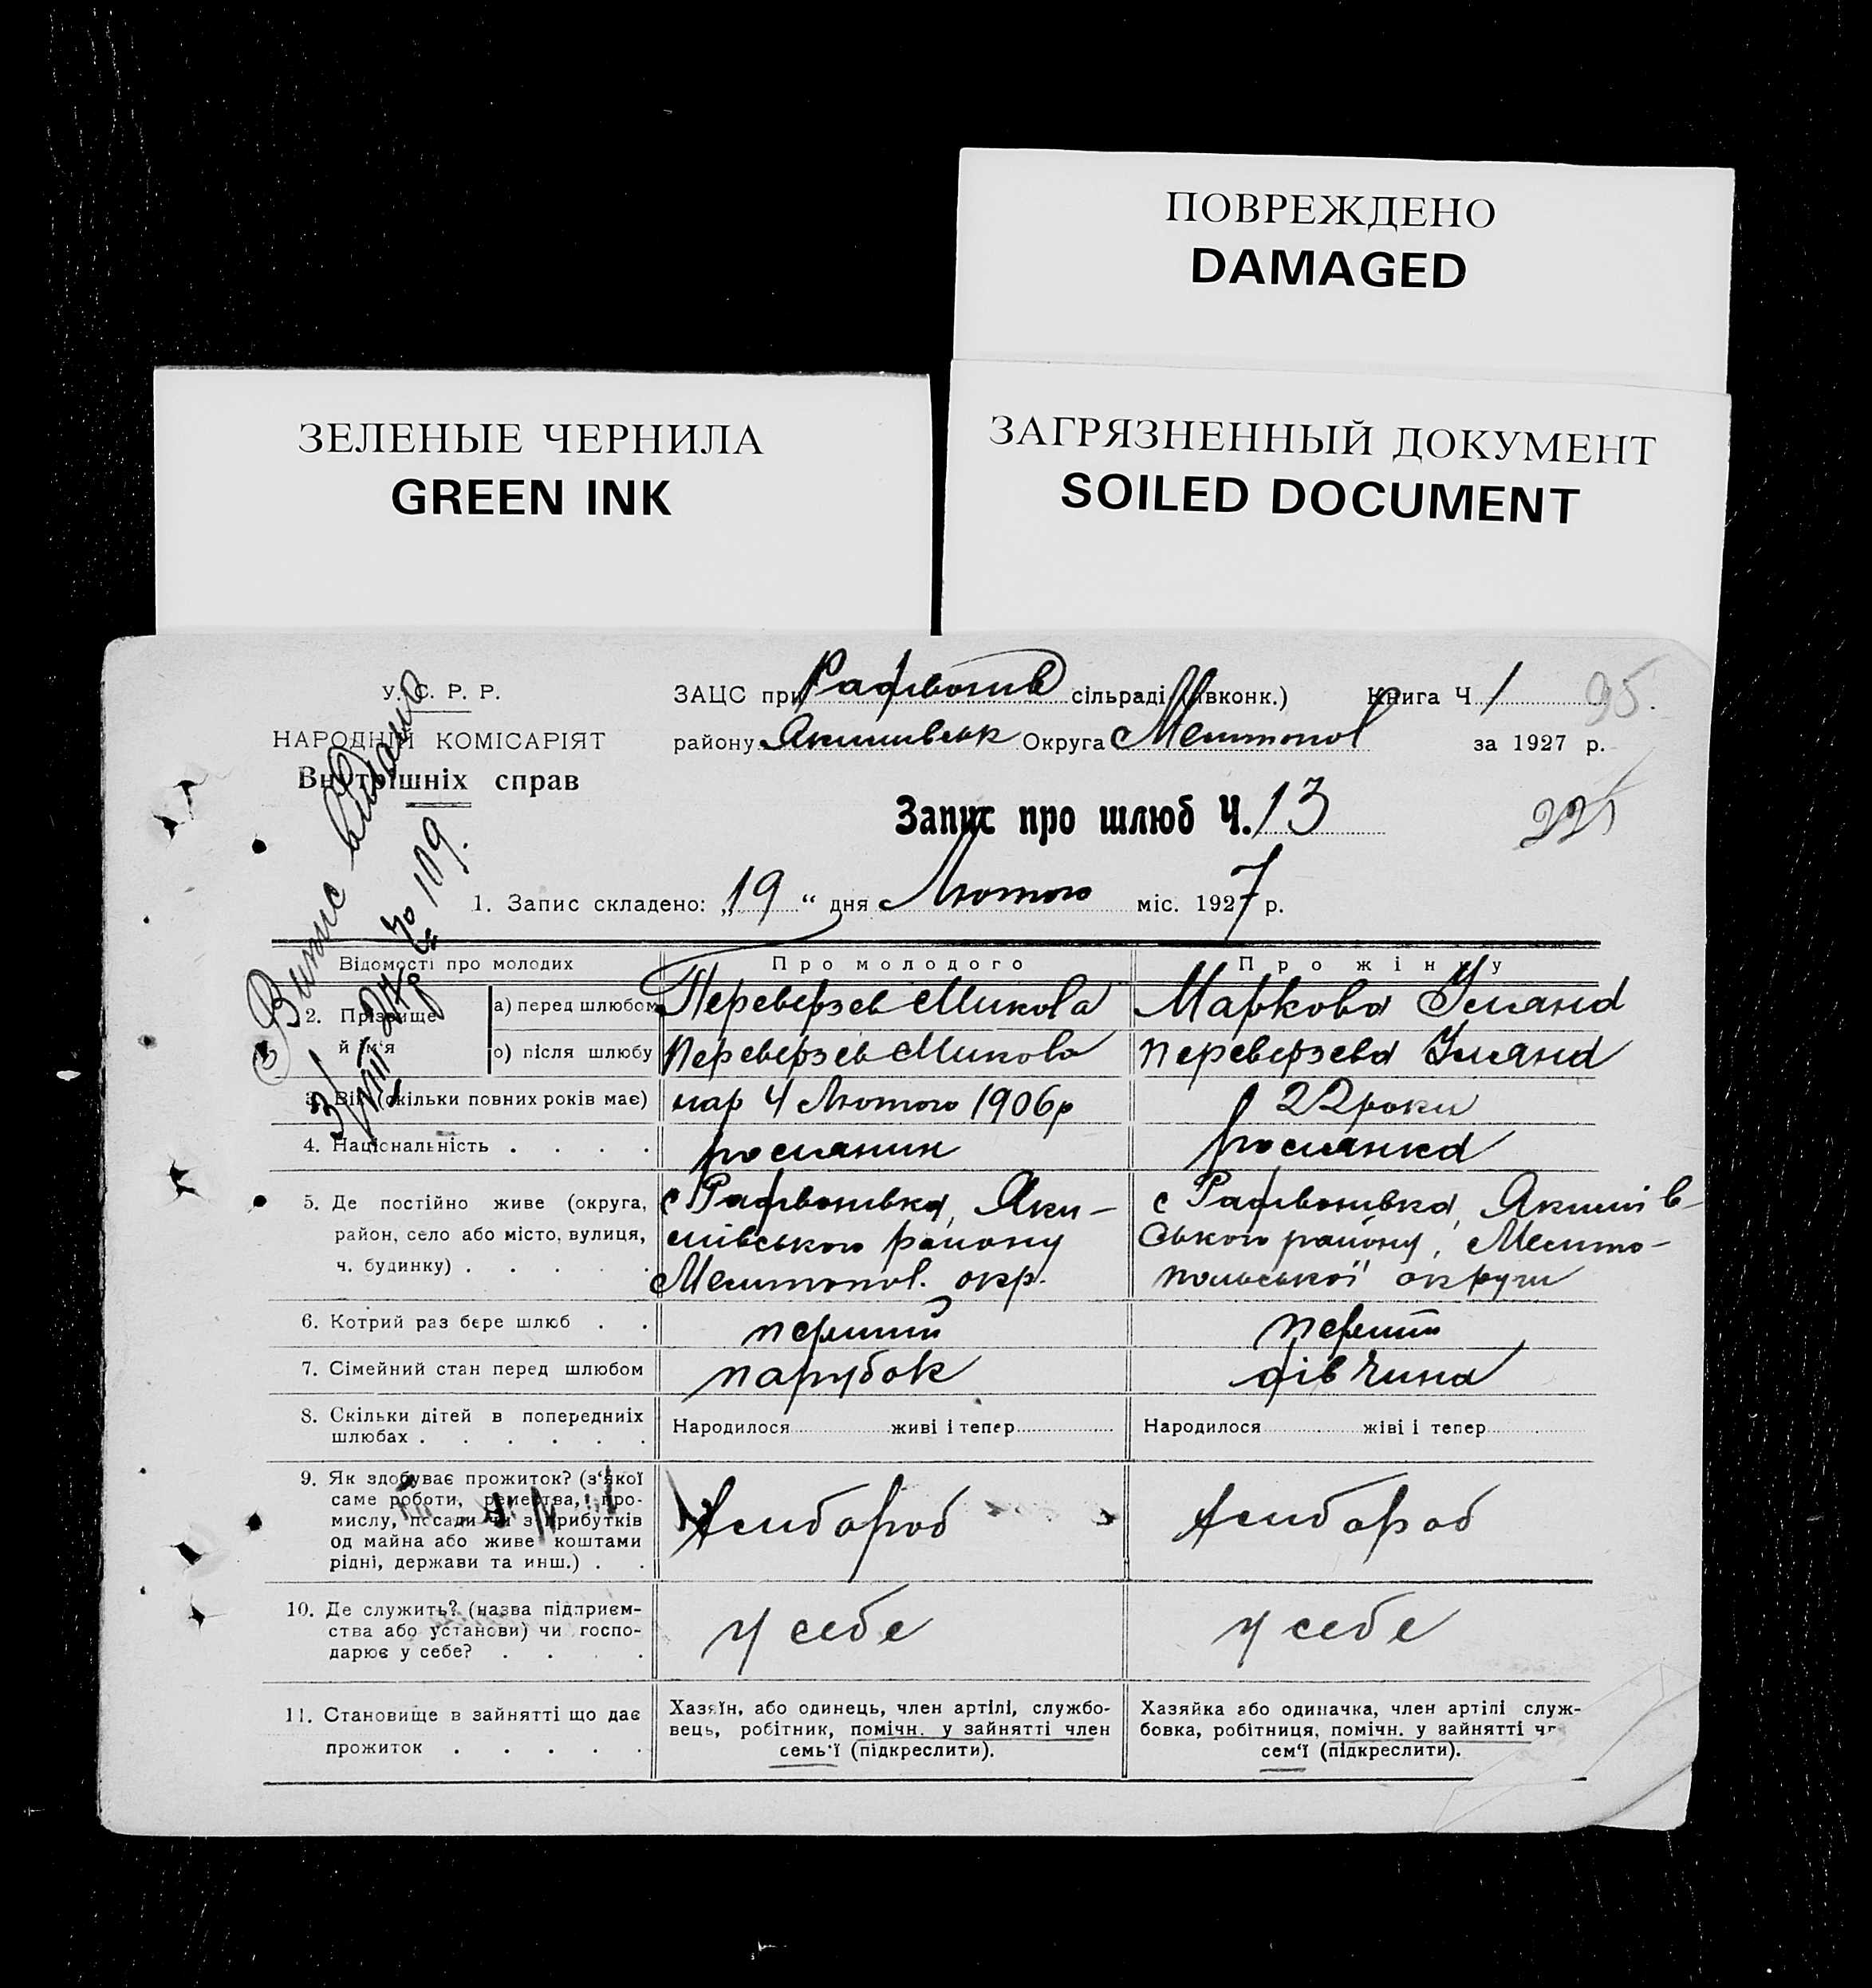 ПОВРЕЖДЕНО
DAMAGED
ЗЕЛЕНЫЕ ЧЕРНИЛА
GREEN INK
ЗАГРЯЗНЕННЫЙ ДОКУМЕНТ
SOILED DOCUMENT
У. С. Р. Р.
НАРОДНІЙ КОМІСАРІЯТ
Внутрішніх справ
ЗАЦС при сільраді (авконк.) Книга Ч 1 95.
району Якимівськ Округа Мелитопол за 1927 р.
Запис про шлюб Ч. 13
221
1. Запис складено: „19“ дня Лютого міс. 1927 р.
Випис видані
109.
Відомості про молодих Про молодого Про жінку
2. Прізвище й ім'я а) перед шлюбом Переверзев Микола Маркова Уляна
о) після шлюбу Переверзев Микола Переверзева Уляна
3. Вік (скільки повних років має) нар 4 Лютого 1906р 22 роки
4. Національність . . . . росіянин росіянка
5. Де постійно живе (округа,
район, село або місто, вулиця,
ч. будинку) . . . . .
с Радивонівка, Яки-
мівського району
Мелитопол. окр.
с Радивонівка, Якимів-
ського району, Мелито-
польської округи
6. Котрий раз бере шлюб . . перший перший
7. Сімейний стан перед шлюбом парубок дівчина
8. Скільки дітей в попередніх
шлюбах . . . . . .
Народилося живі і тепер Народилося жіві і тепер
9. Як здобуває прожиток? (з'якої
саме роботи, ремества, про-
мислу, посади чи з прибутків
од майна або живе коштами
рідні, держави та инш.) . .
Хлибороб Хлибороб
10. Де служить? (назва підприєм-
ства або установи) чи госпо-
дарює у себе? . . . .
у себе у себе
11. Становище в зайнятті що дає
прожиток . . . . .
Хазяїн, або одинець, член артілі, службо-
вець, робітник, помічн. у зайнятті член
семь'ї (підкреслити).
Хазяйка або одиначка, член артілі служ-
бовка, робітниця, помічн. у зайнятті
сем'ї (підкреслити).